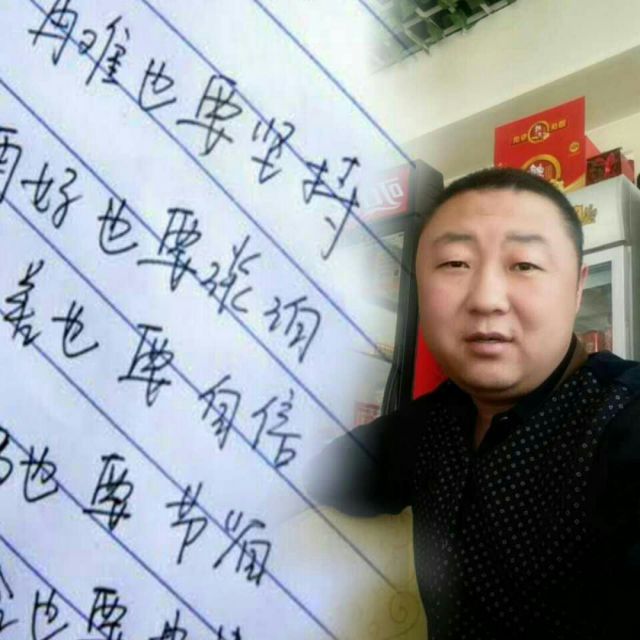 再难也要坚持
再好也要淡泊
差也要自信
多也要节省
也要